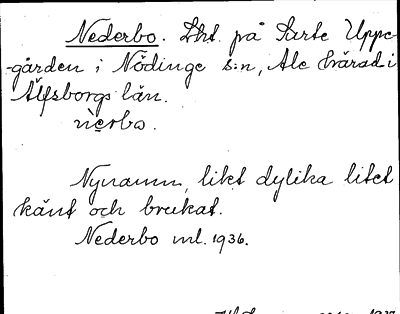 Nederbo. Lht. på Surte Uppe-
gården i Nödinge s:n, Ale härad i
Älfsborgs län.
nèrbo.
Nynamn, likt dylika litet
känt och brukat.
Nederbo ml. 1936.